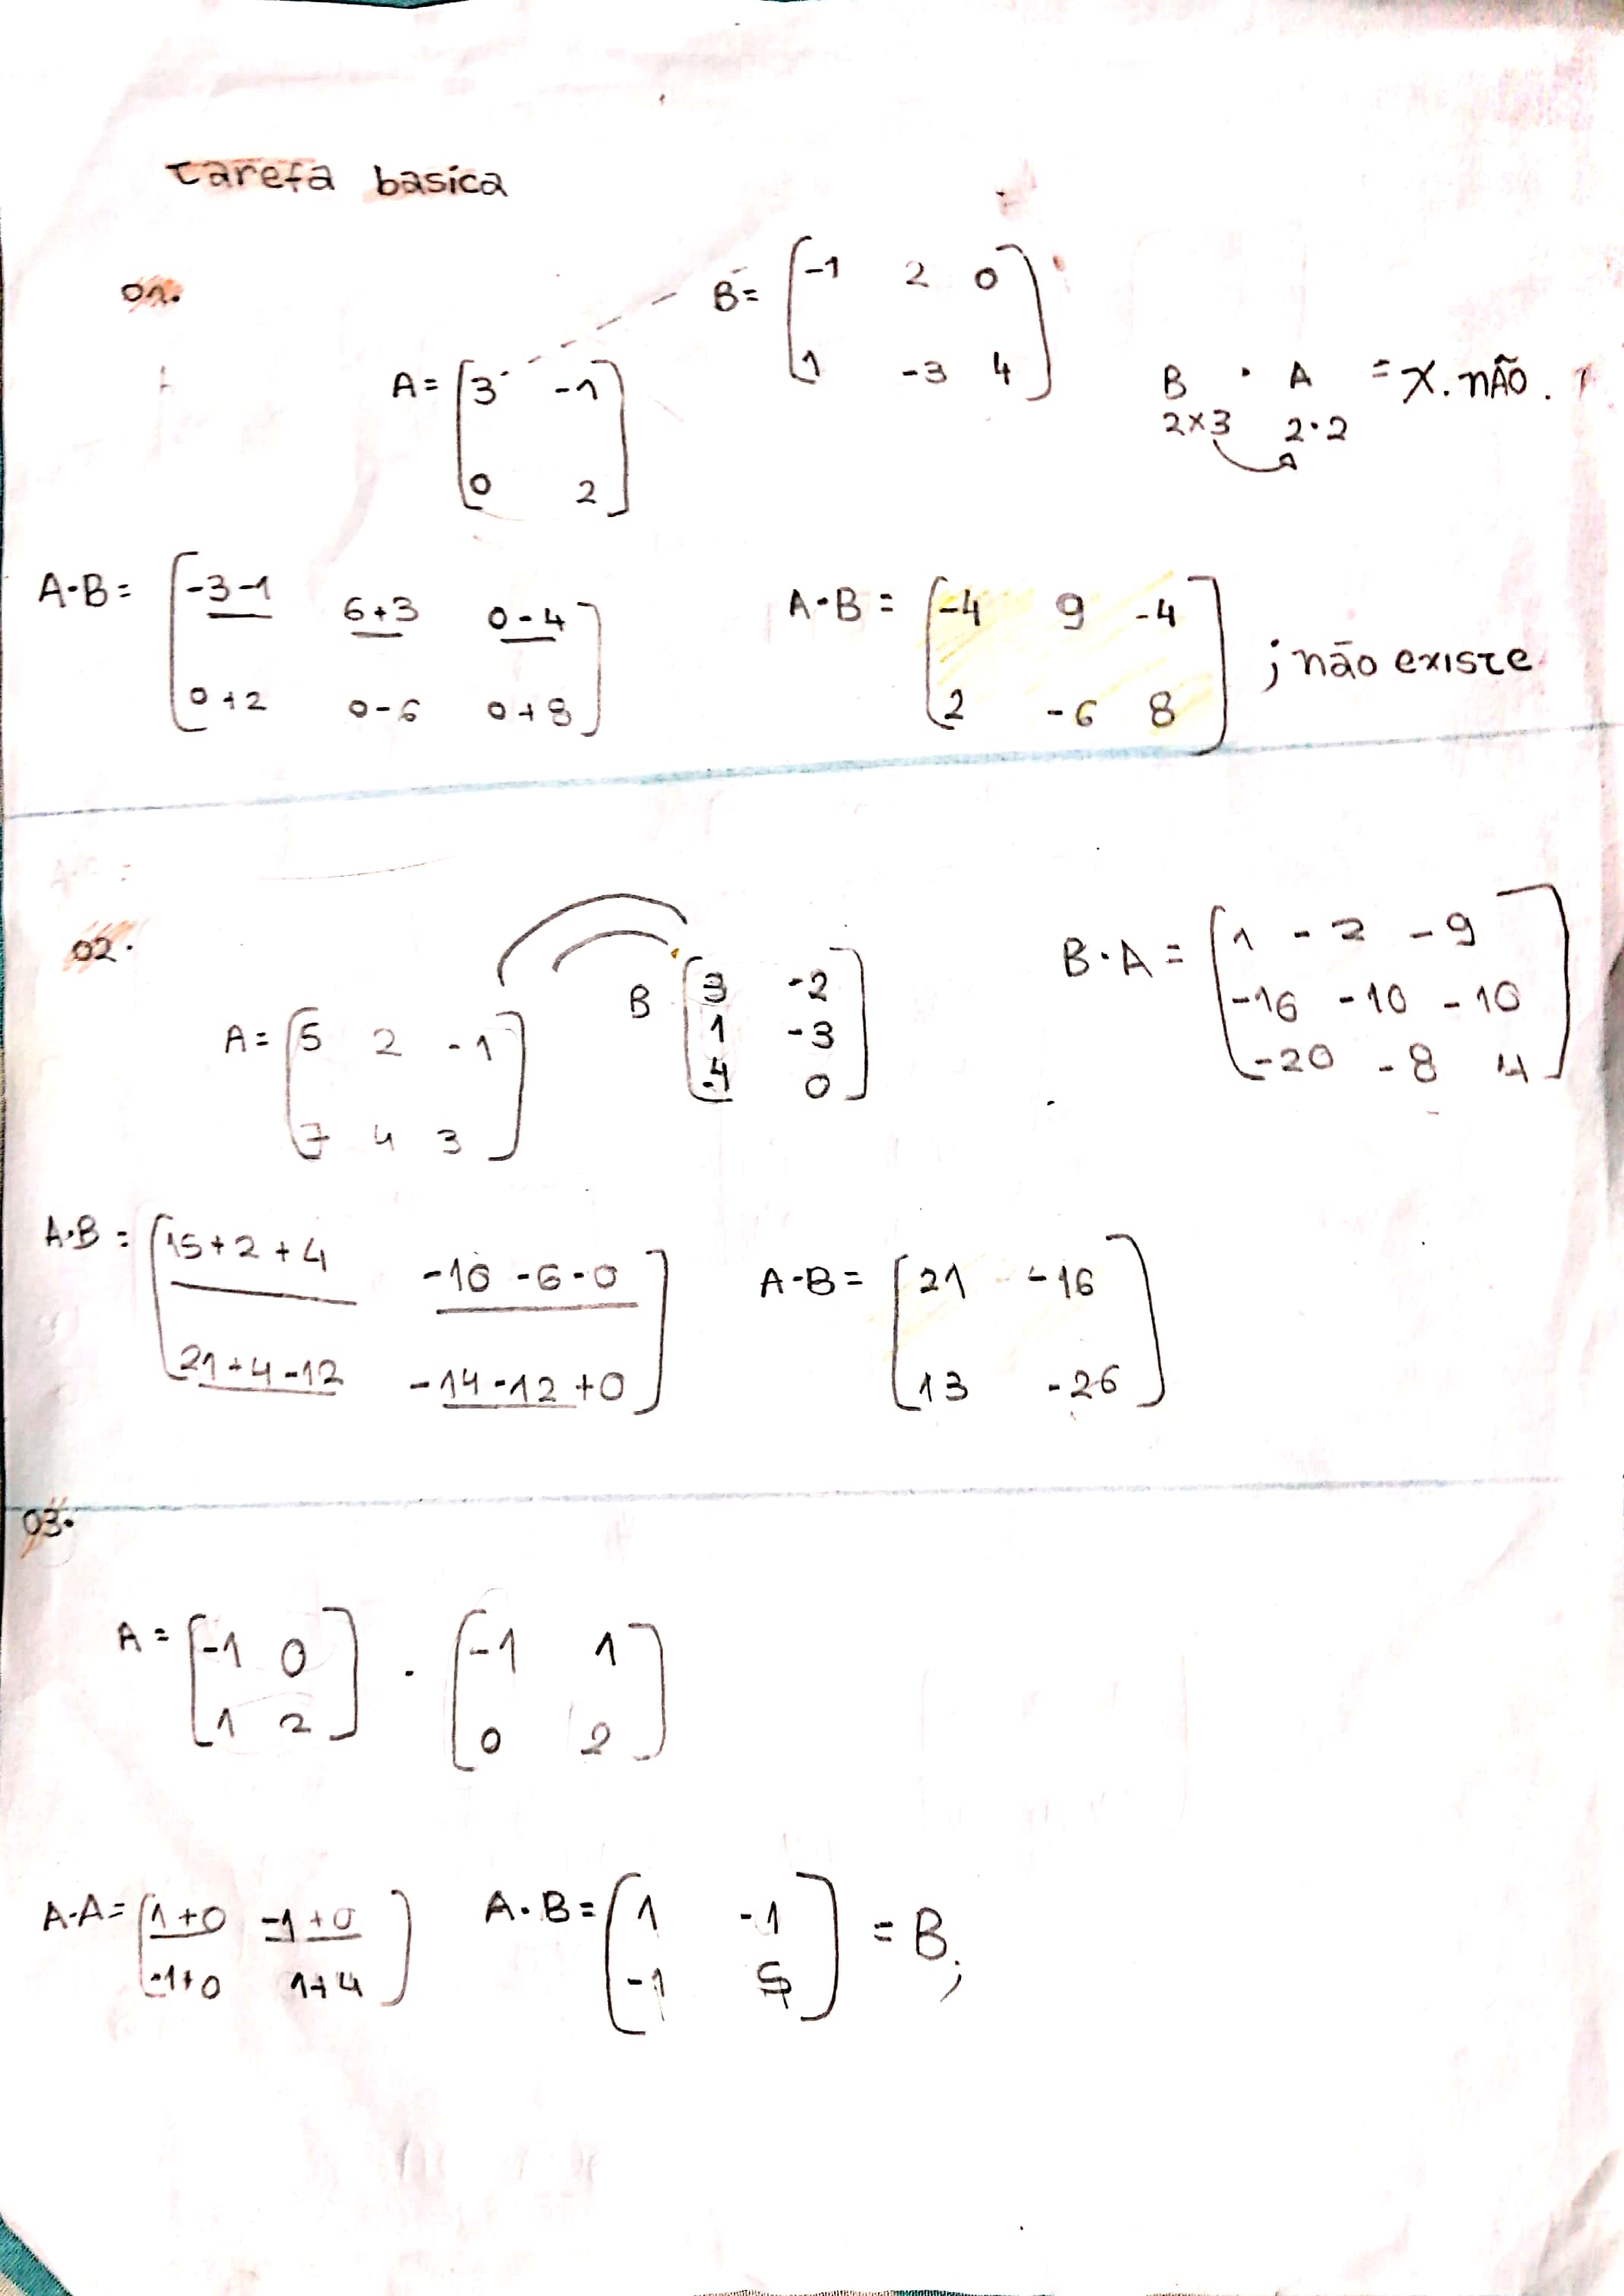 tarefa basica
01.
B= [-1 2 0
1 -3 4]
A= [3 -1
0 2]
B · A = X. nÃO.
2x3 2·2
A·B= [-3-1 6+3 0-4
0+2 0-6 0+8]
A·B = [-4 9 -4
2 -6 8] ; não existe
02.
A= [5 2 -1
7 4 3]
B [3 -2
1 -3
-4 0]
B·A = [1 -2 -9
-16 -10 -10
-20 -8 4]
A·B = [15+2+4 -10-6-0
21+4-12 -14-12+0]
A-B= [21 -16
13 -26]
03.
A= [-1 0
1 2] · [-1 1
0 2]
A·A= [1+0 -1+0
-1+0 1+4]
A·B= [1 -1
-1 5] = B;